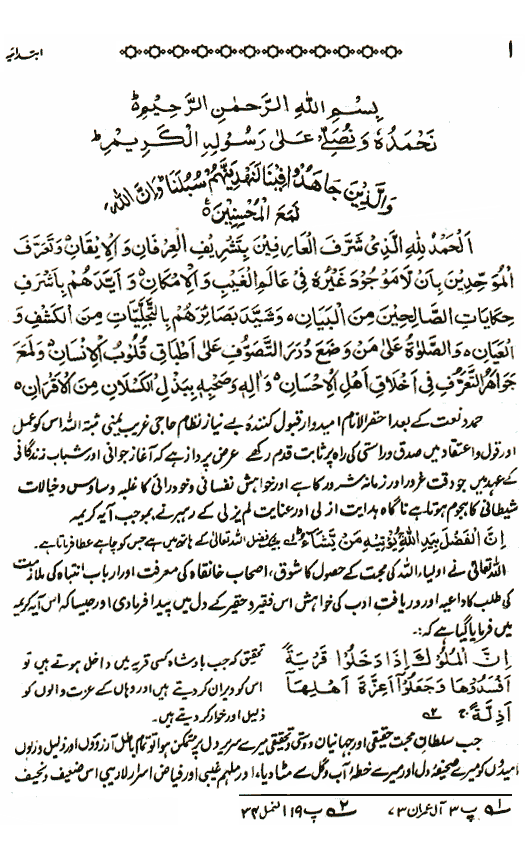 ۱ ابتدائیہ
بِسْمِ اللهِ الرَّحْمٰنِ الرَّحِيْمِ ط
نَحْمَدُهٗ وَنُصَلِّىْ عَلىٰ رَسُوْلِهِ الْكَرِيْمِ ط
وَالَّذِيْنَ جَاهَدُوْا فِيْنَا لَنَهْدِيَنَّهُمْ سُبُلَنَا وَاِنَّ اللهَ
لَمَعَ الْمُحْسِنِيْنَ ۝
اَلْحَمْدُ لِلّٰهِ الَّذِىْ شَرَّفَ الْعَارِفِيْنَ بِتَشْرِيْفِ الْعِرْفَانِ وَالْاِيْقَانِ وَتَعَرَّفَ
الْمُوَحِّدِيْنَ بِاَنْ لَا مَوْجُوْدَ غَيْرُهٗ فِىْ عَالَمِ الْغَيْبِ وَالْاِمْكَانِ وَاَيَّدَهُمْ بِاَشْرَفِ
حِكَايَاتِ الصَّالِحِيْنَ مِنَ الْبَيَانِ، وَشَيَّدَ بَصَائِرَهُمْ بِالتَّجَلِّيَاتِ مِنَ الْكَشْفِ وَ
الْعَيَانِ، وَالصَّلٰوةُ عَلىٰ مَنْ وَضَعَ دُرَرَ التَّصَوُّفِ عَلىٰ اَطْبَاقِ قُلُوْبِ الْاِنْسَانِ وَلَمَعَ
جَوَاهِرَ التَّعَرُّفِ فِىْ اَخْلَاقِ اَهْلِ الْاِحْسَانِ وَاٰلِهٖ وَصَحْبِهٖ بِبَذْلِ الْكَسْلَانِ مِنَ الْاَقْرَانِ ۝
حمد و نعت کے بعد احقر الانام امیدوار قبول کنندۂ بے نیاز نظام حاجی غریب یمنی ثبتہ اللہ اس کو عمل
اور قول و اعتقاد میں صدق و راستی کی راہ پر ثابت قدم رکھے عرض پرداز ہے کہ آغاز جوانی اور شباب زندگانی
کے عہد میں جو وقت غرور اور زمانہ شرور کا ہے اور خواہش نفسانی و خود رائی کا غلبہ و ساوس و خیالات
شیطانی کا ہجوم ہوتا ہے ناگاہ ہدایت ازلی اور عنایت لم یزلی کے رہبر نے بموجب آیہ کریمہ
اِنَّ الْفَضْلَ بِيَدِ اللهِ يُؤْتِيْهِ مَنْ يَّشَآءُ ۱؎ بیشک فضل اللہ تعالیٰ کے ہاتھ میں ہے جس کو چاہے عطا فرماتا ہے۔
اللہ تعالیٰ نے اولیاء اللہ کی محبت کے حصول کا شوق، اصحاب خانقاہ کی معرفت اور ارباب انتباہ کی ملازمت
کی طلب کا داعیہ اور دریافت ادب کی خواہش اس فقیر و حقیر کے دل میں پیدا فرما دی اور جیسا کہ اس آیہ کریمہ
میں فرمایا گیا ہے کہ:۔
اِنَّ الْمُلُوْكَ اِذَا دَخَلُوْا قَرْيَةً تحقیق کہ جب بادشاہ کسی قریہ میں داخل ہوتے ہیں تو
اَفْسَدُوْهَا وَجَعَلُوْا اَعِزَّةَ اَهْلِهَا اس کو ویران کر دیتے ہیں اور وہاں کے عزت والوں کو
اَذِلَّةً ج ۲؎ ذلیل اور خوار کر دیتے ہیں۔
جب سلطان محبت حقیقی اور جہانبان دوستی تحقیقی میرے سریر دل پر متمکن ہوا تو تمام باطل آرزوؤں اور ذلیل و زبوں
امیدوں کو میرے صحیفۂ دل اور میرے خطۂ آب و گل سے مٹا دیا، اور ملہم غیبی اور فیاض اسرار لاریبی اس ضعیف و نحیف
۱؎ پ ۳ آل عمران ۷۳ ۲؎ پ ۱۹ النمل ۳۴